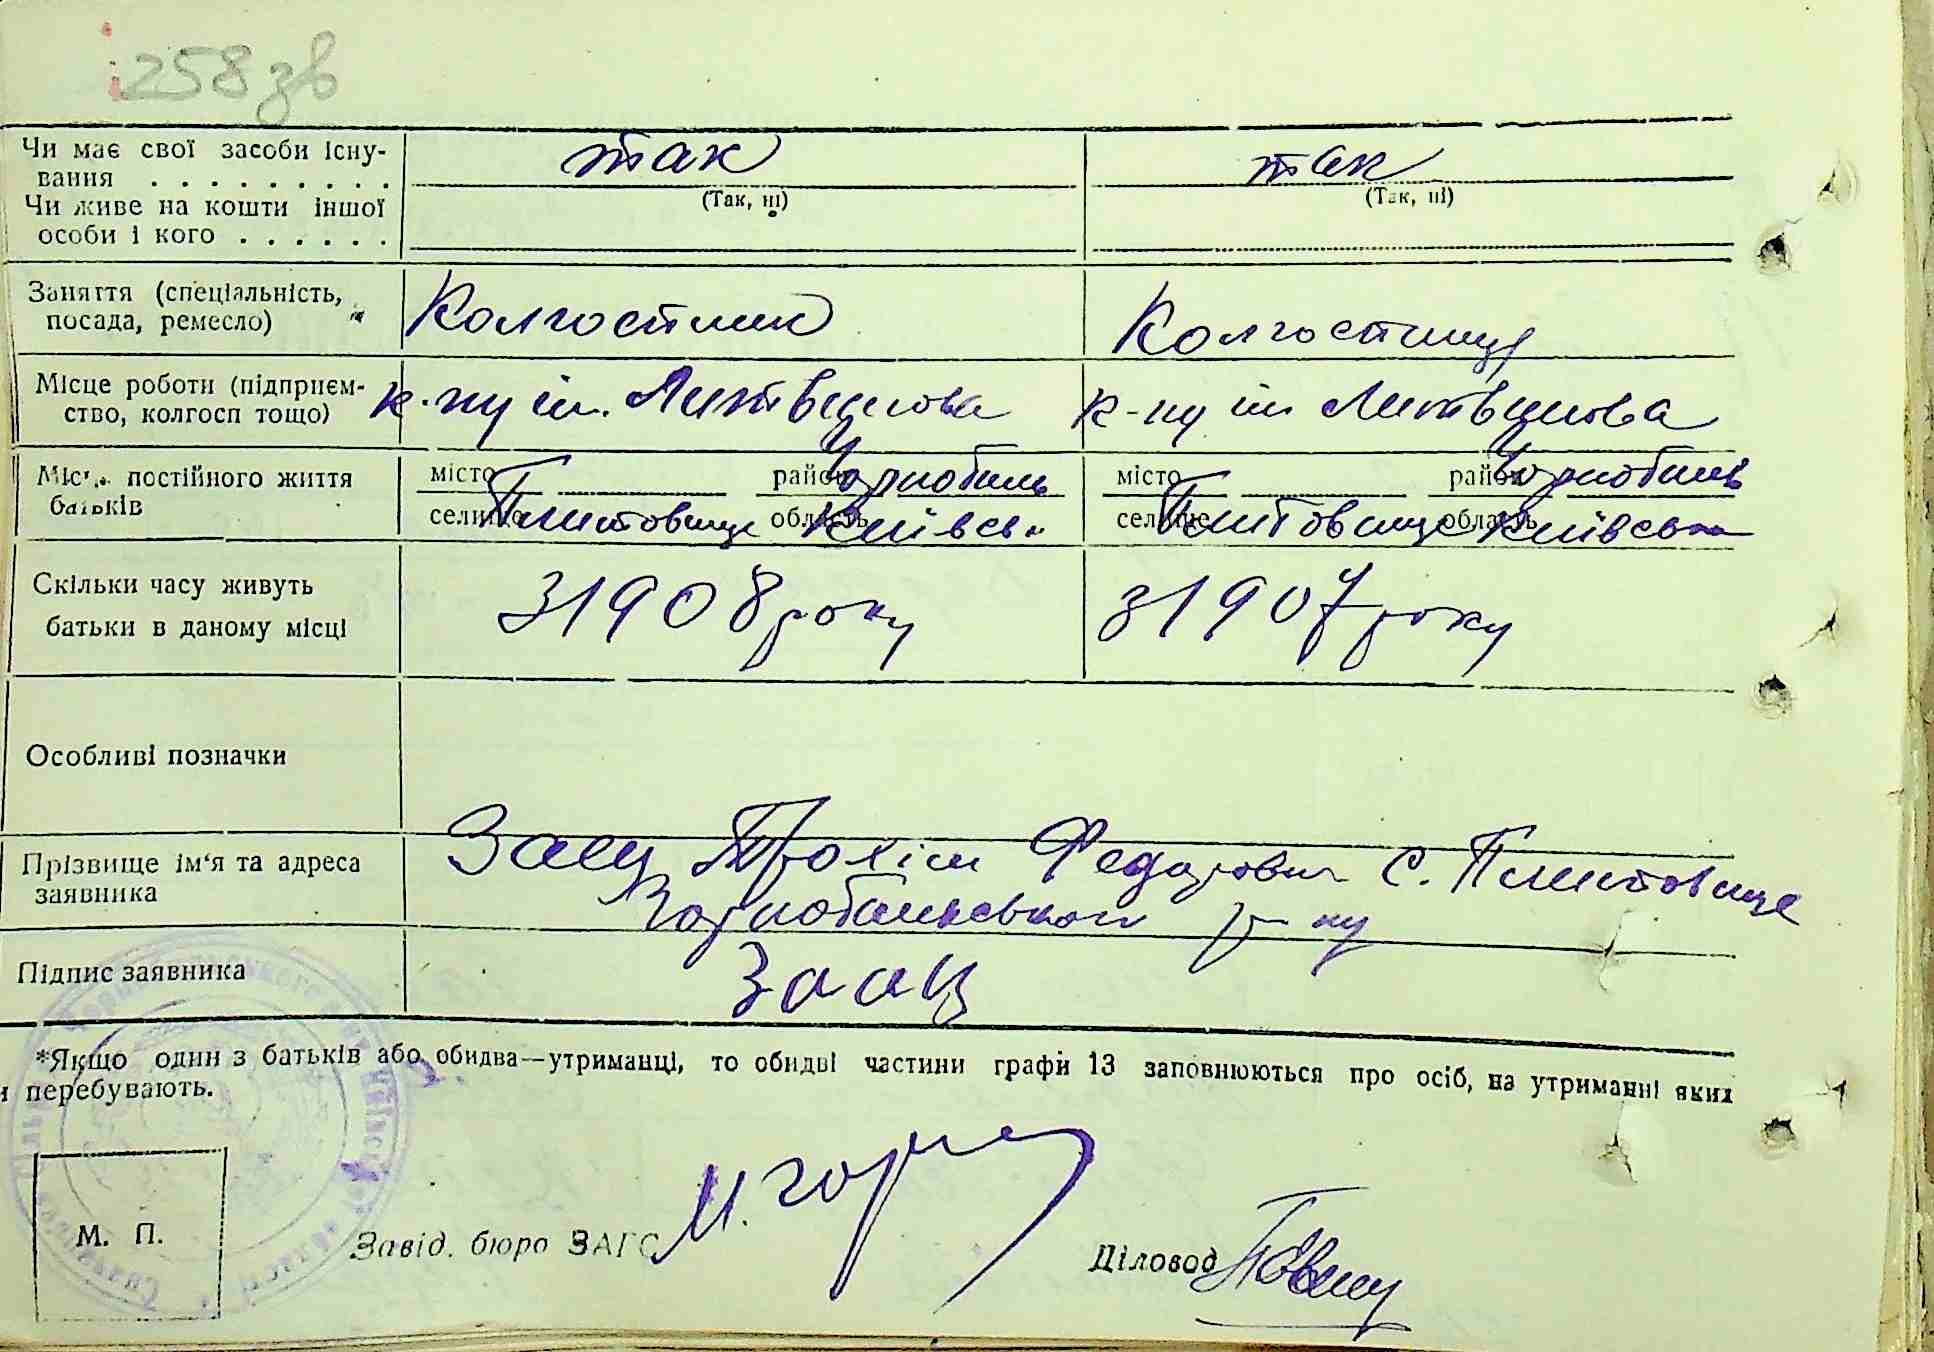 258 зв
Чи має свої засоби існу-
вання . . . . . . . . . так так
(Так, ні) (Так, ні)
Чи живе на кошти іншої
особи і кого . . . . . .
Заняття (спеціальність,
посада, ремесло) Колгоспник Колгоспниця
Місце роботи (підприєм-
ство, колгосп тощо) к-пу ім. Литвинова к-пу ім Литвинова
Місце постійного життя
батьків
місто район Чорнобиль місто район Чорнобиль
селище Плитовище область Київсь селище Плитовище область Київська
Скільки часу живуть
батьки в даному місці
З 1908 року з 1907 року
Особливі позначки
Прізвище ім'я та адреса
заявника
Заєц Трохім Федорович с. Плитовище
Чорнобильського р-ну
Підпис заявника Заац
*Якщо один з батьків або обидва—утриманці, то обидві частини графи 13 заповнюються про осіб, на утриманні яких
и перебувають.
М. П.
Завід. бюро ЗАГС
Діловод